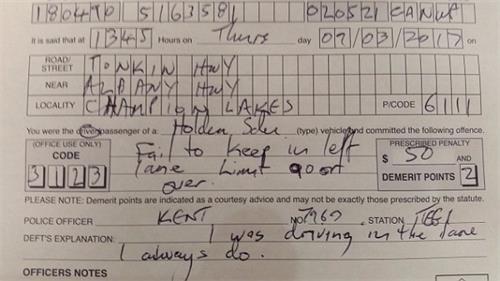 180490 516358 020521 CANW
It is said that at 1345 Hours on Thurs day 07/03/2017 on
ROAD/STREET TONKIN HWY
NEAR ALBANY HWY
LOCALITY CHAMPION LAKES P/CODE 6111
You were the driver/passenger of a Holden Sdn (type) vehicle and committed the following offence.
(OFFICE USE ONLY) CODE 3123
Fail to keep in left
lane limit 90 or
over.
PRESCRIBED PENALTY
$ 50 AND
DEMERIT POINTS 2
PLEASE NOTE: Demerit points are indicated as a courtesy advice and may not be exactly those prescribed by the statute.
POLICE OFFICER KENT NO STATION
DEFT'S EXPLANATION: I was driving in the lane
I always do.
OFFICERS NOTES